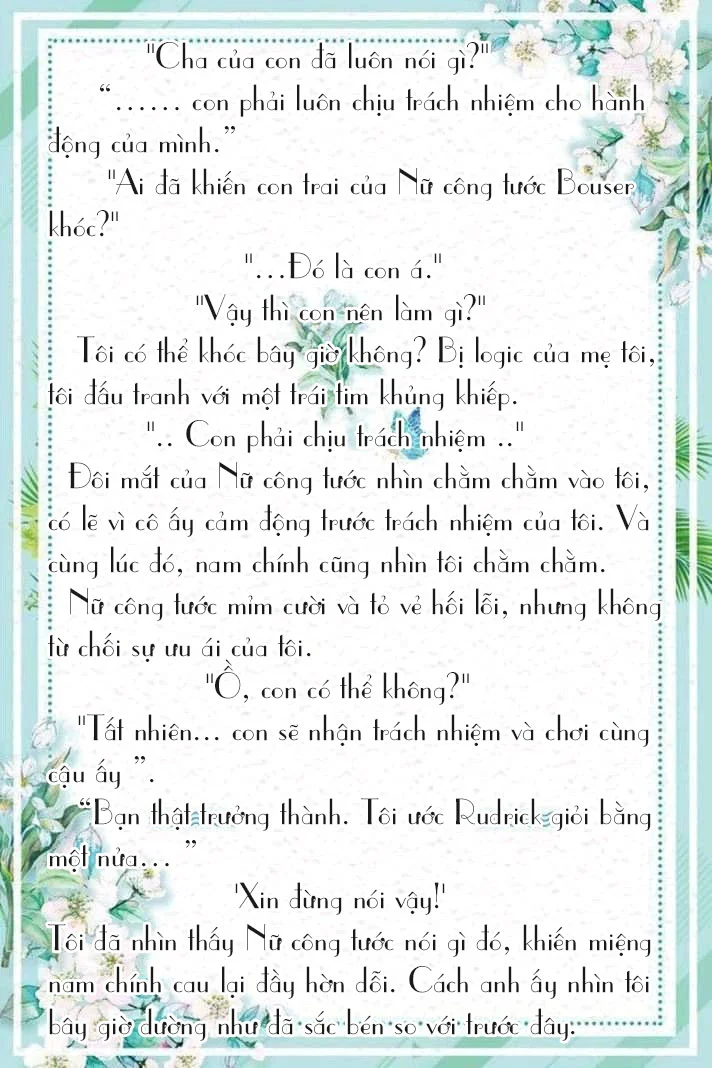 "Cha của con đã luôn nói gì?"
“…… con phải luôn chịu trách nhiệm cho hành
động của mình.”
"Ai đã khiến con trai của Nữ công tước Bouser
khóc?"
"…Đó là con á."
"Vậy thì con nên làm gì?"
Tôi có thể khóc bây giờ không? Bị logic của mẹ tôi,
tôi đấu tranh với một trái tim khủng khiếp.
".. Con phải chịu trách nhiệm .."
Đôi mắt của Nữ công tước nhìn chằm chằm vào tôi,
có lẽ vì cô ấy cảm động trước trách nhiệm của tôi. Và
cùng lúc đó, nam chính cũng nhìn tôi chằm chằm.
Nữ công tước mỉm cười và tỏ vẻ hối lỗi, nhưng không
từ chối sự ưu ái của tôi.
"Ồ, con có thể không?"
"Tất nhiên… con sẽ nhận trách nhiệm và chơi cùng
cậu ấy ”.
“Bạn thật trưởng thành. Tôi ước Rudrick giỏi bằng
một nửa… ”
'Xin đừng nói vậy!'
Tôi đã nhìn thấy Nữ công tước nói gì đó, khiến miệng
nam chính cau lại đầy hờn dỗi. Cách anh ấy nhìn tôi
bây giờ dường như đã sắc bén so với trước đây.